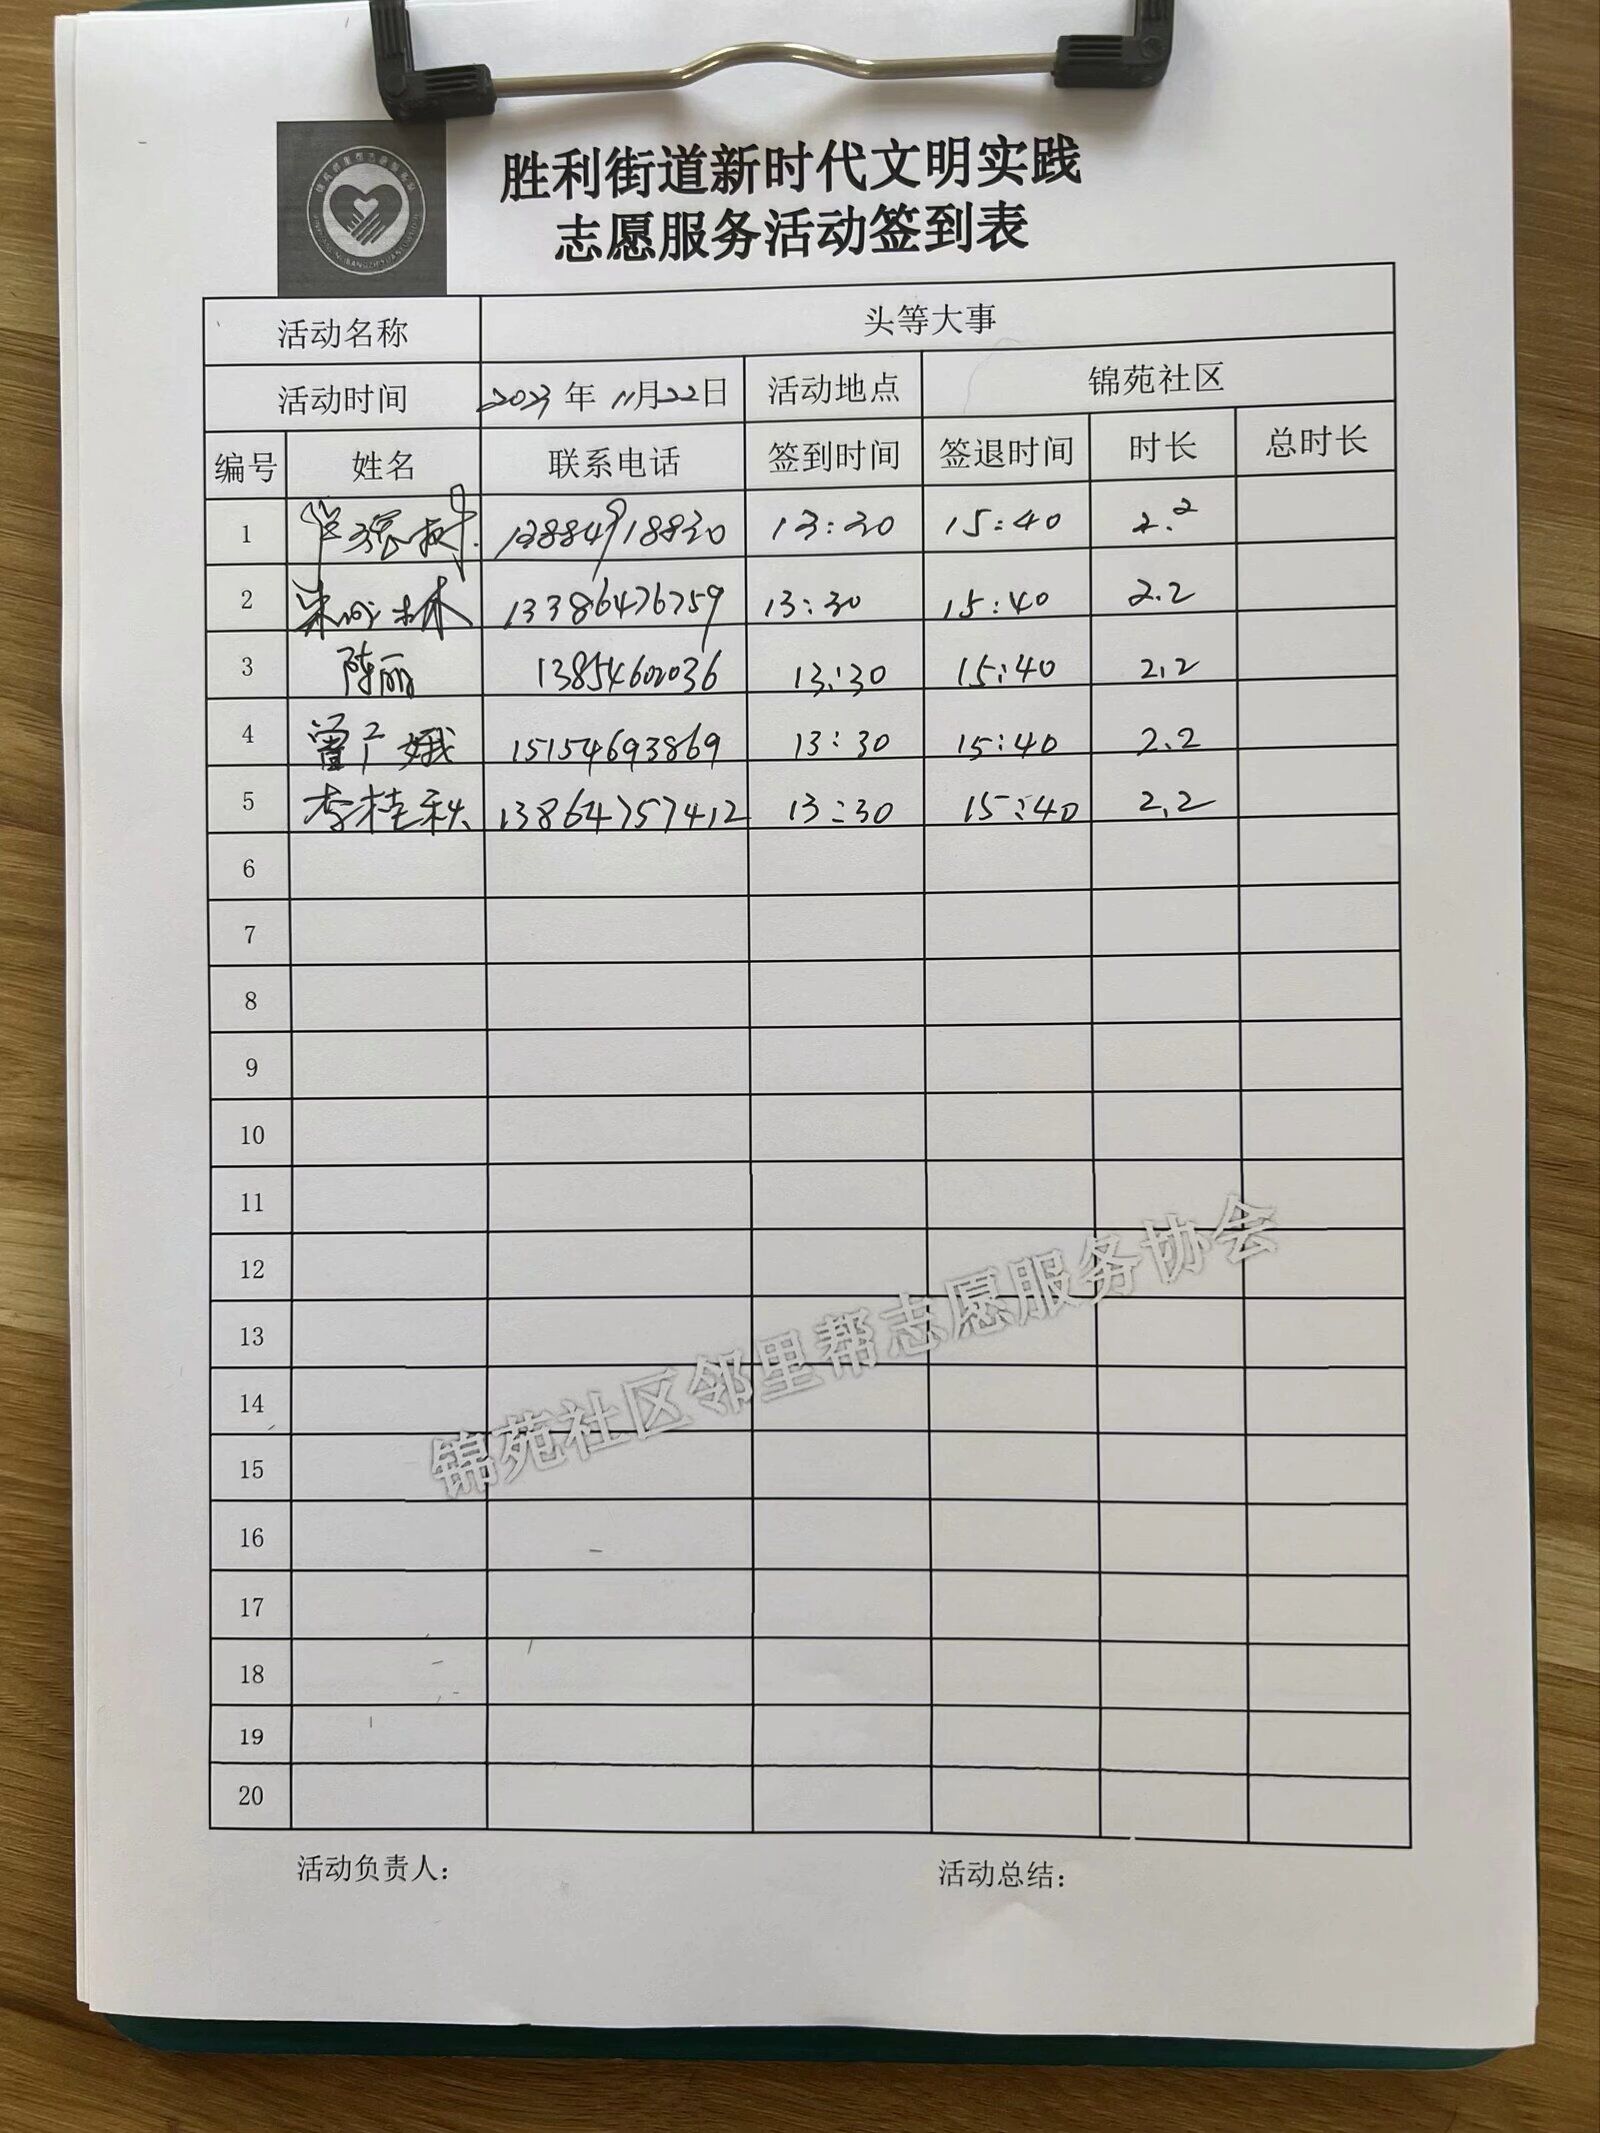 胜利街道新时代文明实践
志愿服务活动签到表
活动名称 头等大事
活动时间 2023年11月22日 活动地点 锦苑社区
编号 姓名 联系电话 签到时间 签退时间 时长 总时长
1 13884918830 13:30 15:40 2.2
2 13386476759 13:30 15:40 2.2
3 陈丽 13854602036 13:30 15:40 2.2
4 曹广娥 15154693869 13:30 15:40 2.2
5 李桂秋 13864757412 13:30 15:40 2.2
6
7
8
9
10
11
12
13
14
15
16
17
18
19
20
锦苑社区邻里帮志愿服务协会
活动负责人： 活动总结：